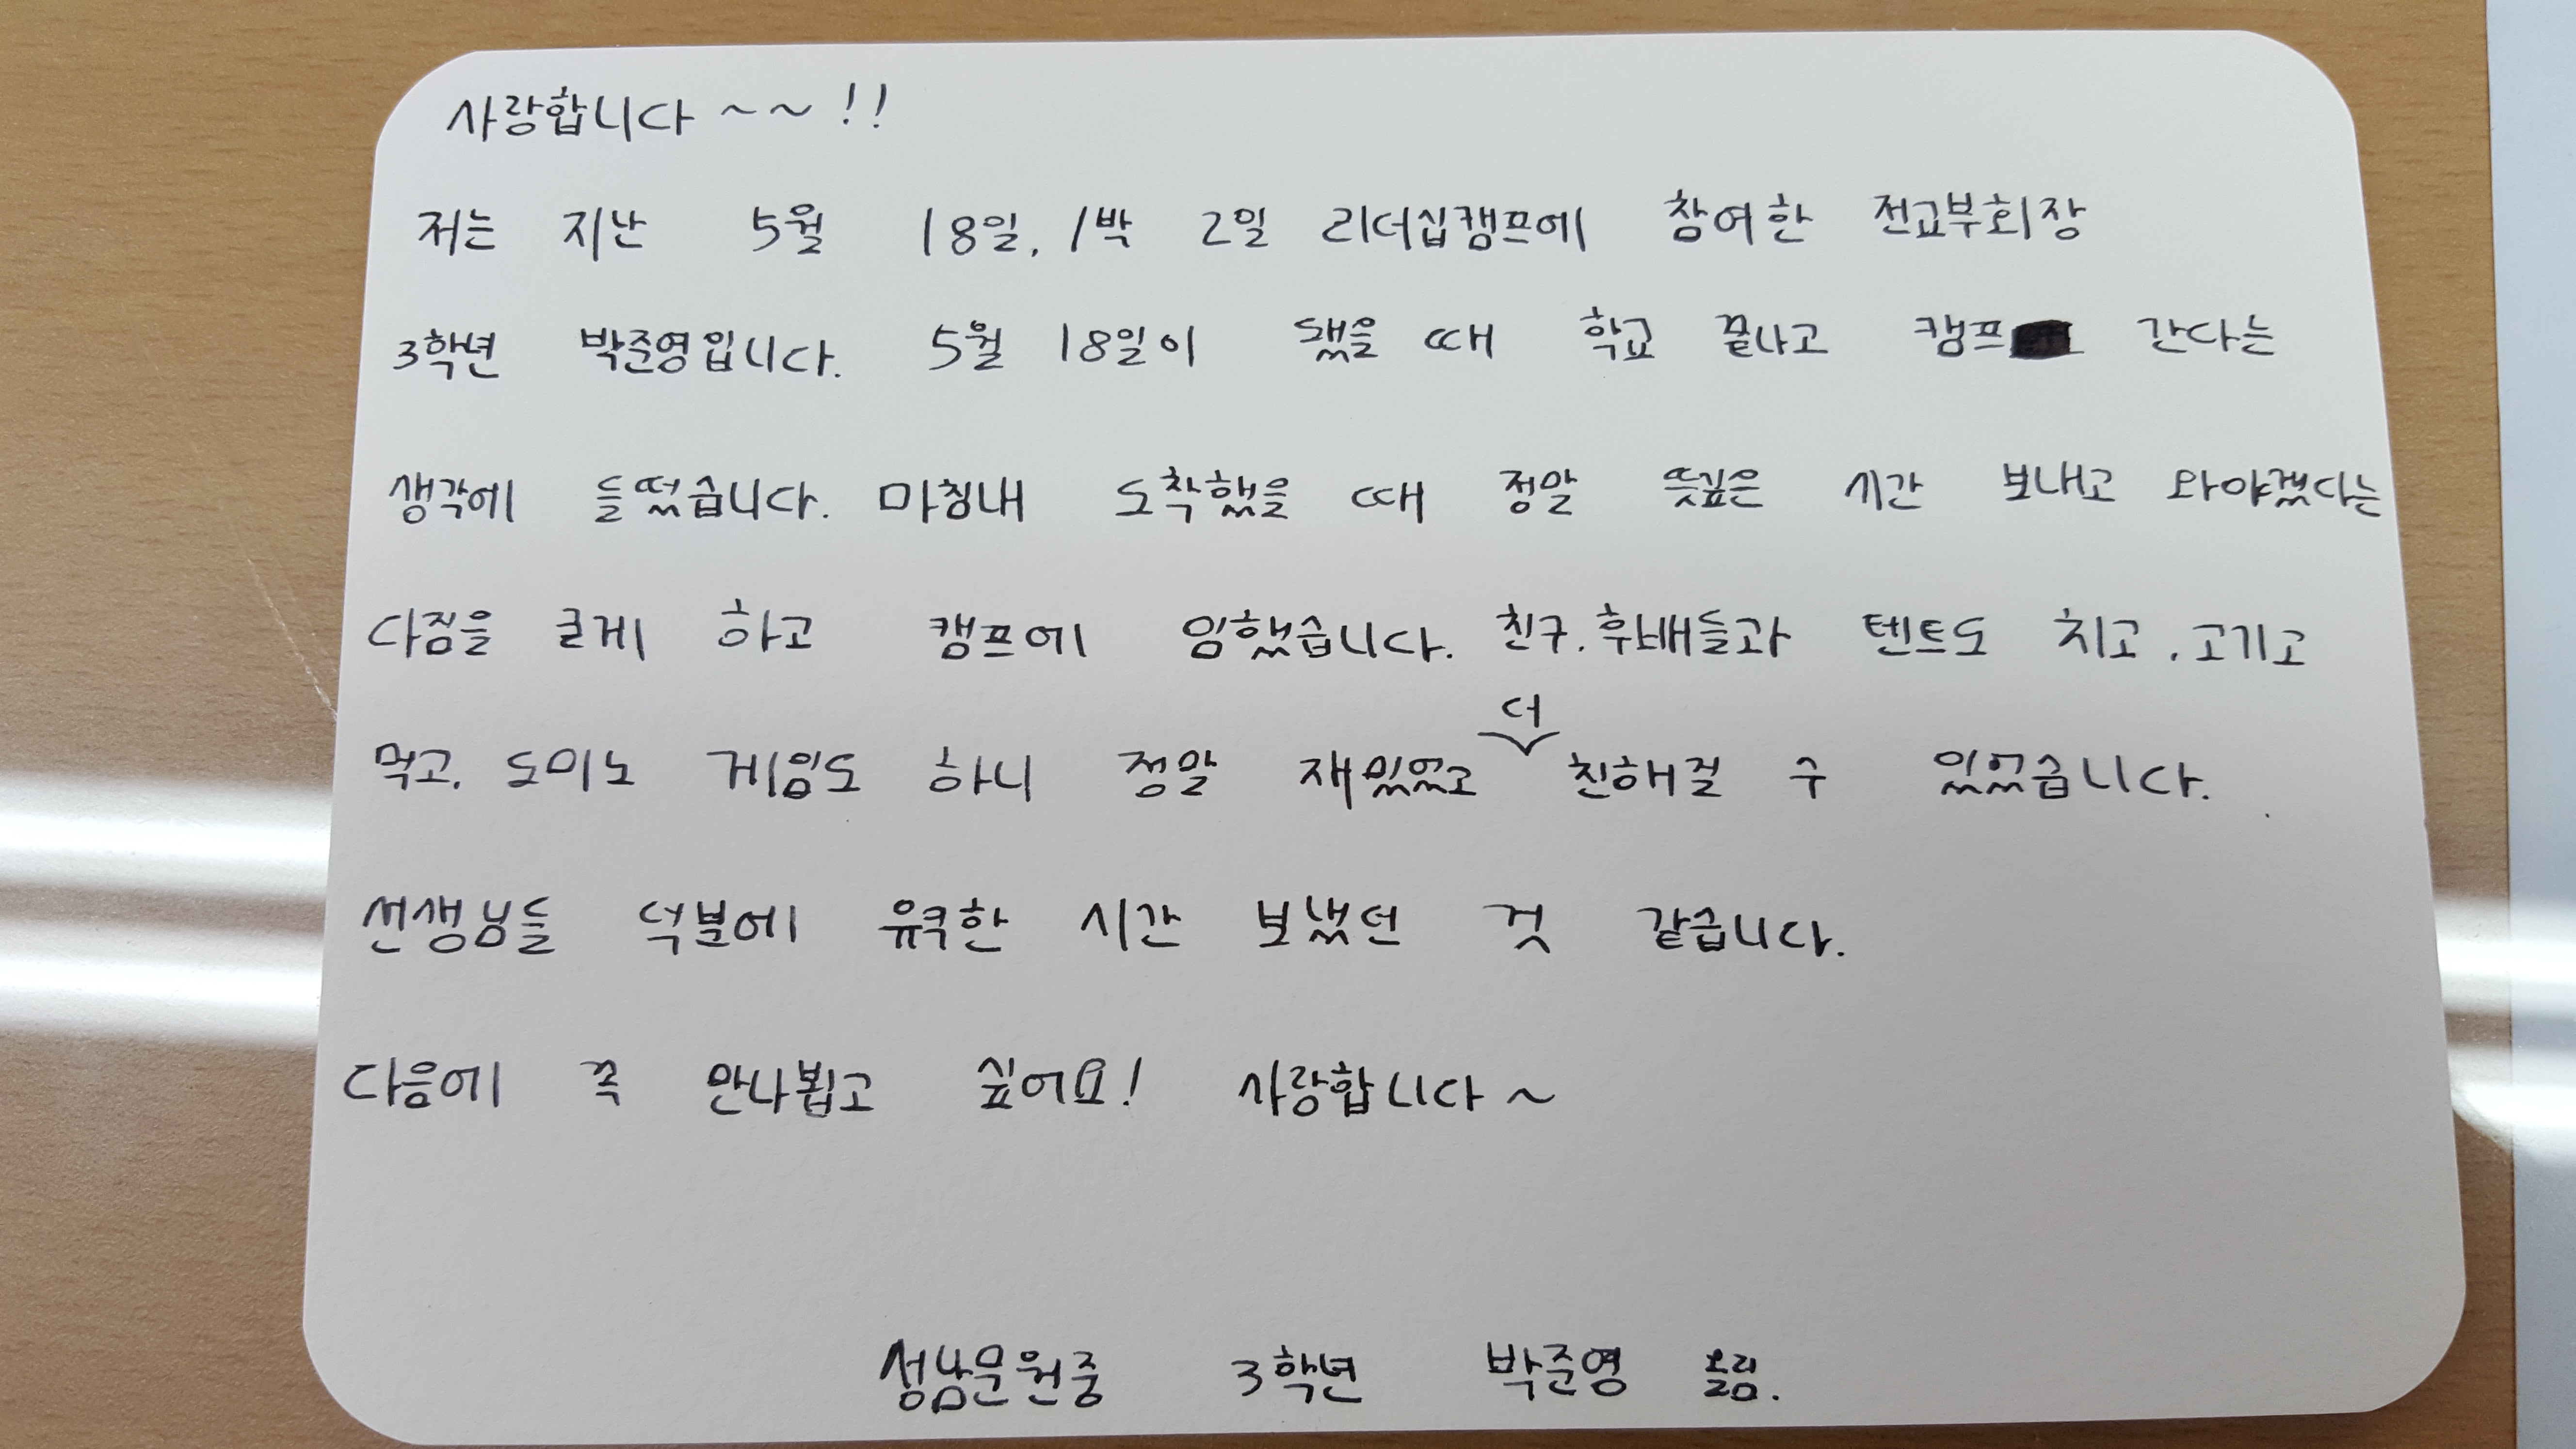 사랑합니다~~!!
저는 지난 5월 18일, 1박 2일 리더십캠프에 참여한 전교부회장
3학년 박준영입니다. 5월 18일이 됐을 때 학교 끝나고 캠프 간다는
생각에 들떴습니다. 마침내 도착했을 때 정말 뜻깊은 시간 보내고 와야겠다는
다짐을 굳게 하고 캠프에 임했습니다. 친구, 후배들과 텐트도 치고, 고기고
먹고, 모이도 게임도 하니 정말 재밌었고 더 친해질 수 있었습니다.
선생님들 덕분에 유익한 시간 보냈던 것 같습니다.
다음에 꼭 만나뵙고 싶어요! 사랑합니다~
3학년 박준영 올림.